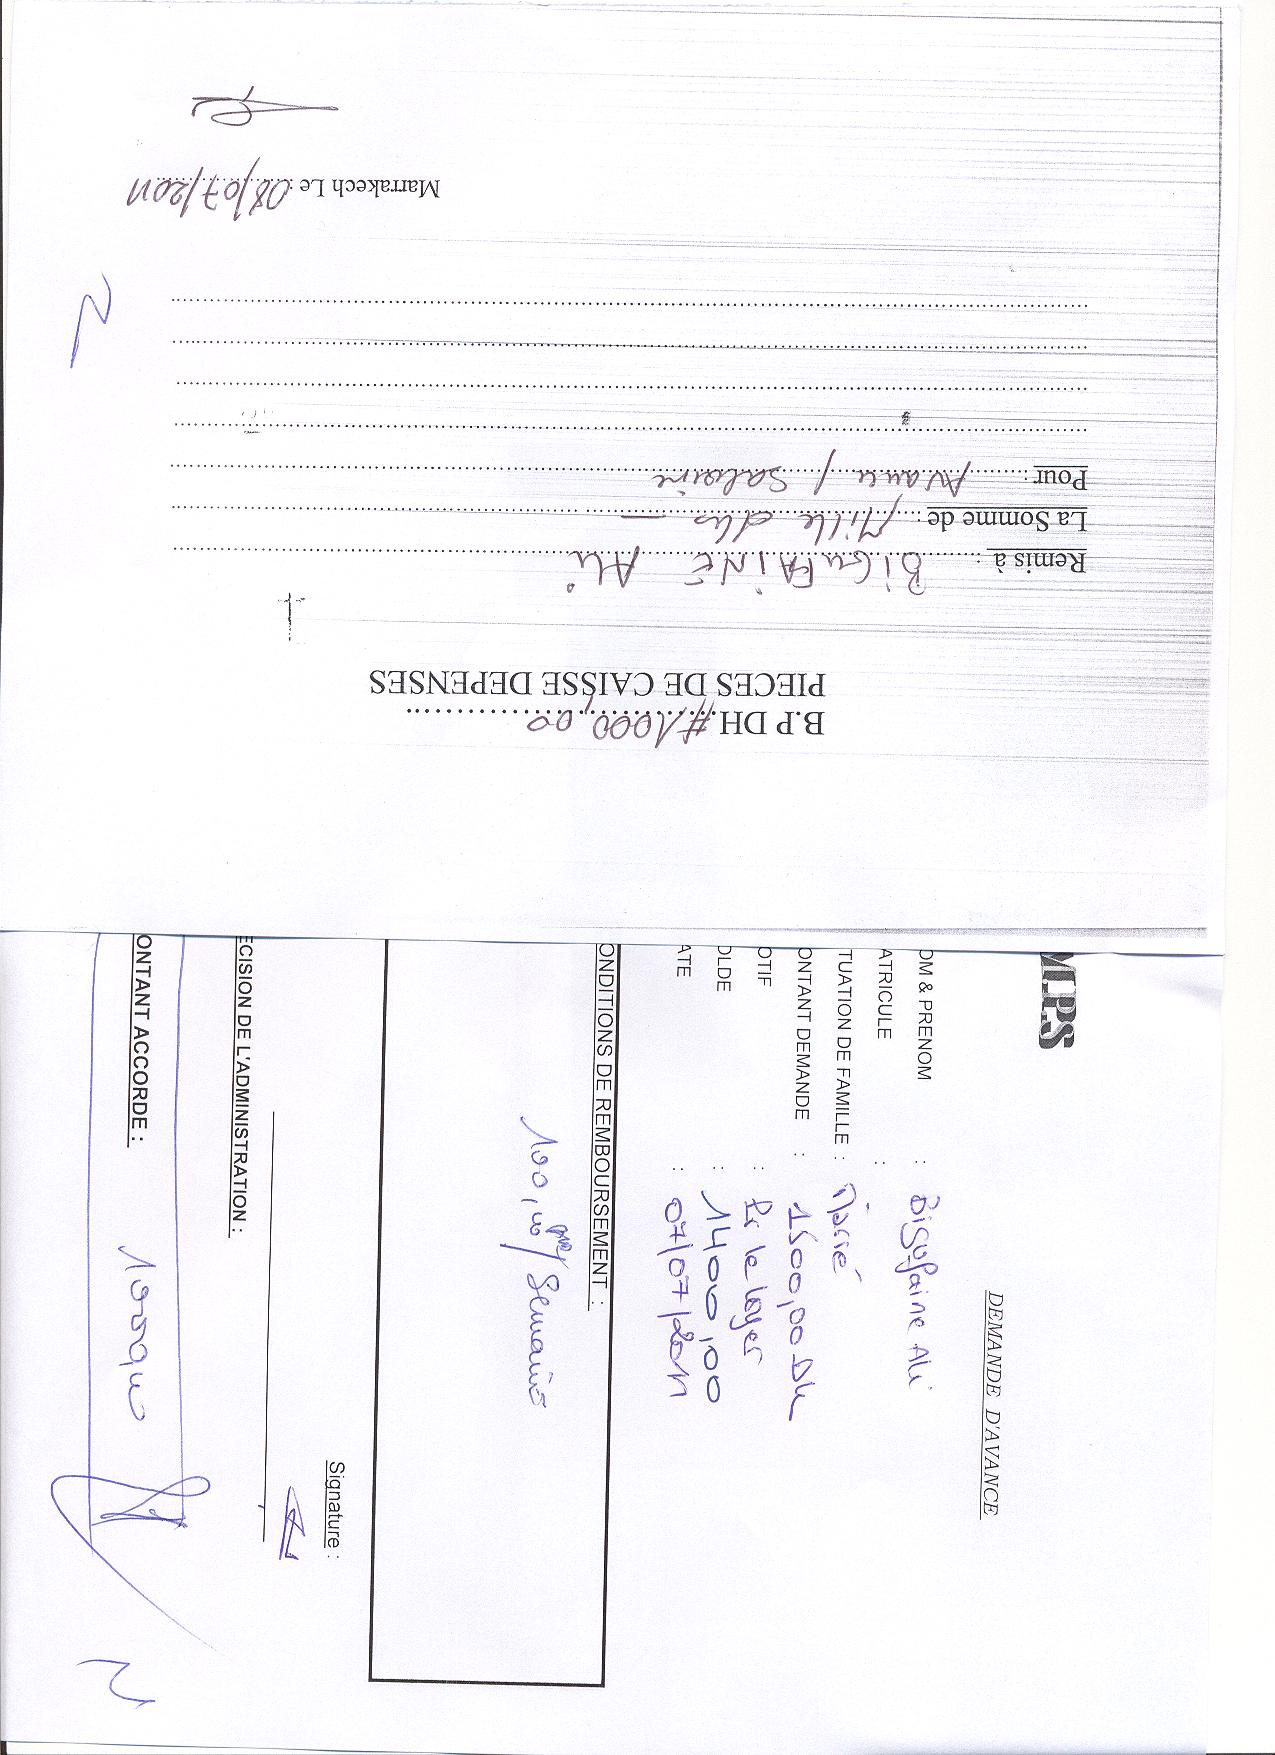 B.P DH #1000,00
PIECES DE CAISSE DEPENSES
Remis à : BIGUFAINE Ali
La Somme de : Mille dhs —
Pour : Avance / Salaire
Marrakech Le : 08/07/2011
MPS
DEMANDE D'AVANCE
OM & PRENOM : Bigufaine Ali
ATRICULE :
TUATION DE FAMILLE : Marié
ONTANT DEMANDE : 1500,00 Dh
OTIF : Pr le loyer
OLDE : 1400,00
ATE : 07/07/2011
ONDITIONS DE REMBOURSEMENT :
100,00 / Semaine
Signature :
ECISION DE L'ADMINISTRATION :
ONTANT ACCORDE :